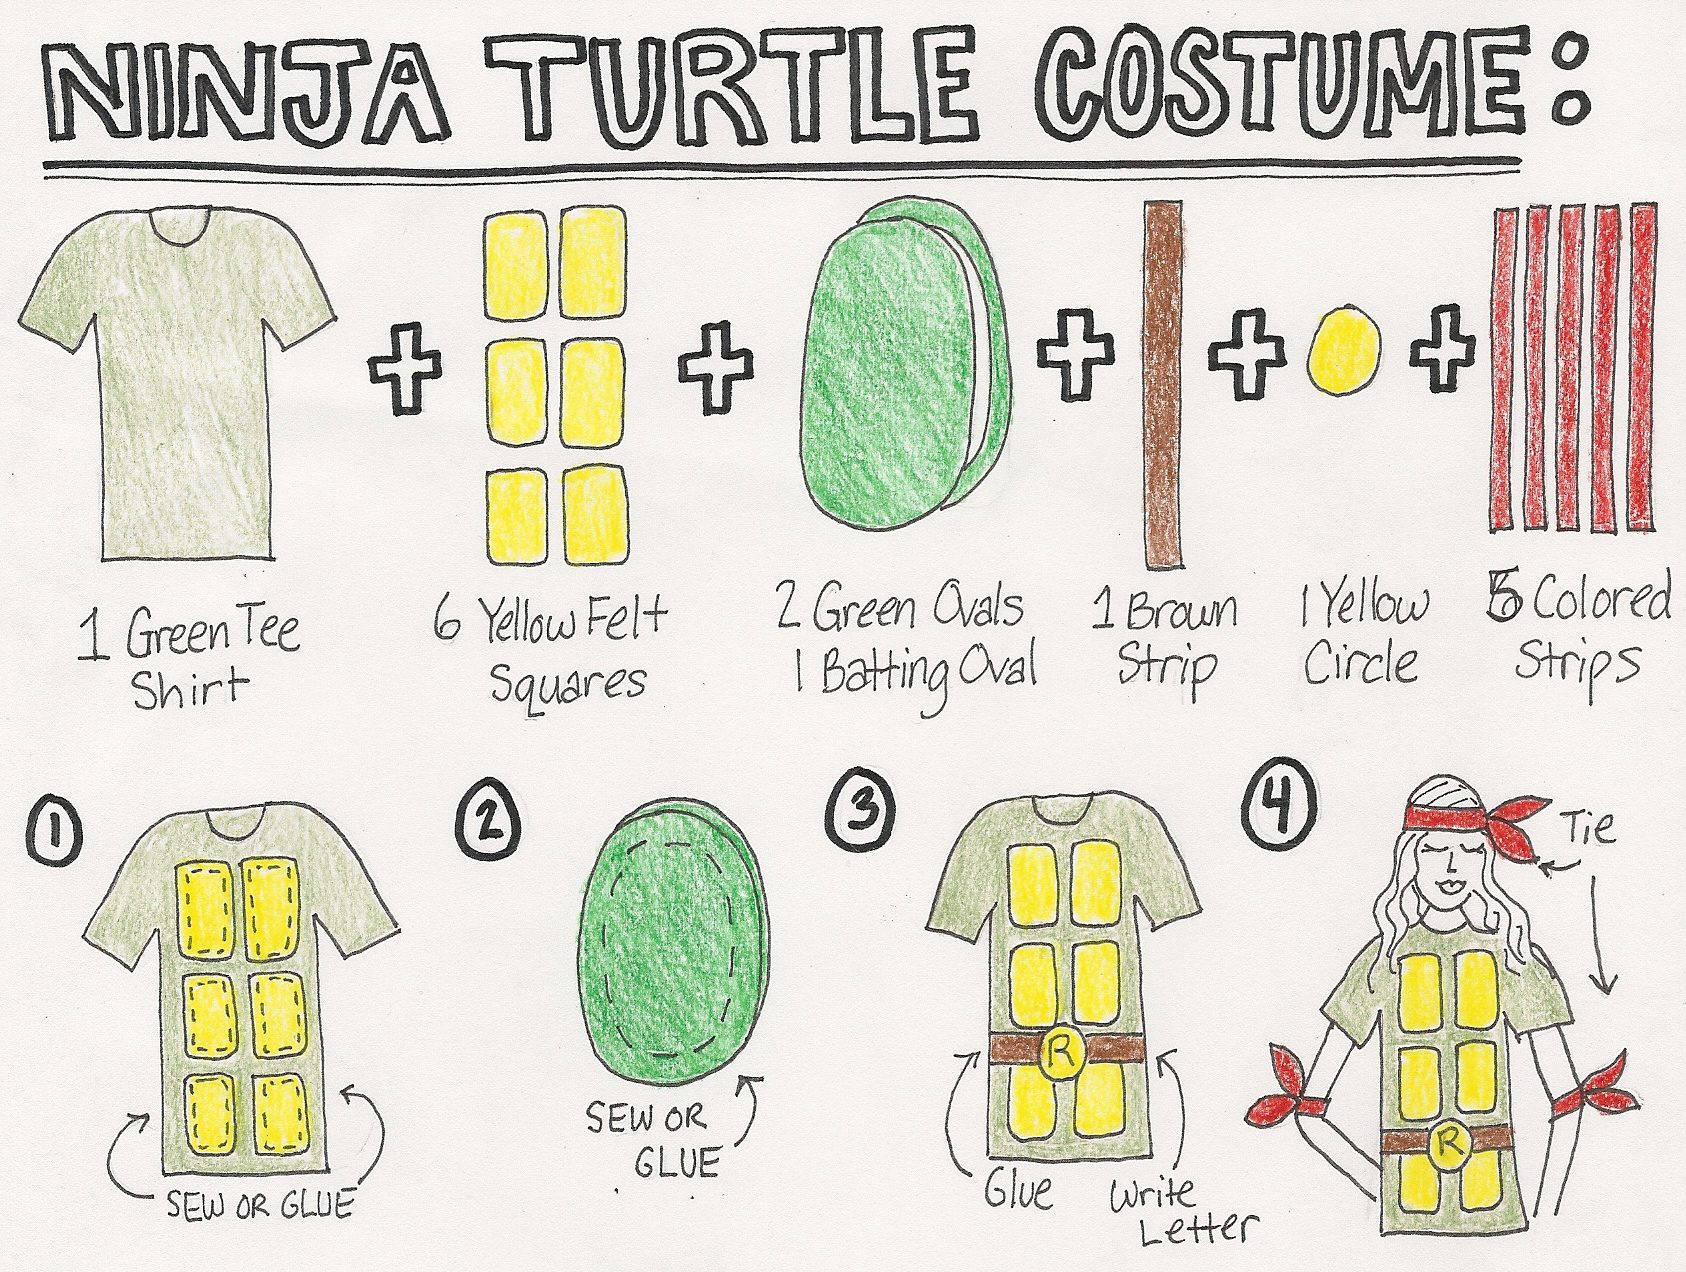 NINJA TURTLE COSTUME:
1 Green Tee
Shirt
6 Yellow Felt
Squares
2 Green Ovals
1 Batting Oval
1 Brown
Strip
1 Yellow
Circle
5 Colored
Strips
1
SEW OR GLUE
2
SEW OR
GLUE
3
R
Glue
Write
Letter
4
Tie
R